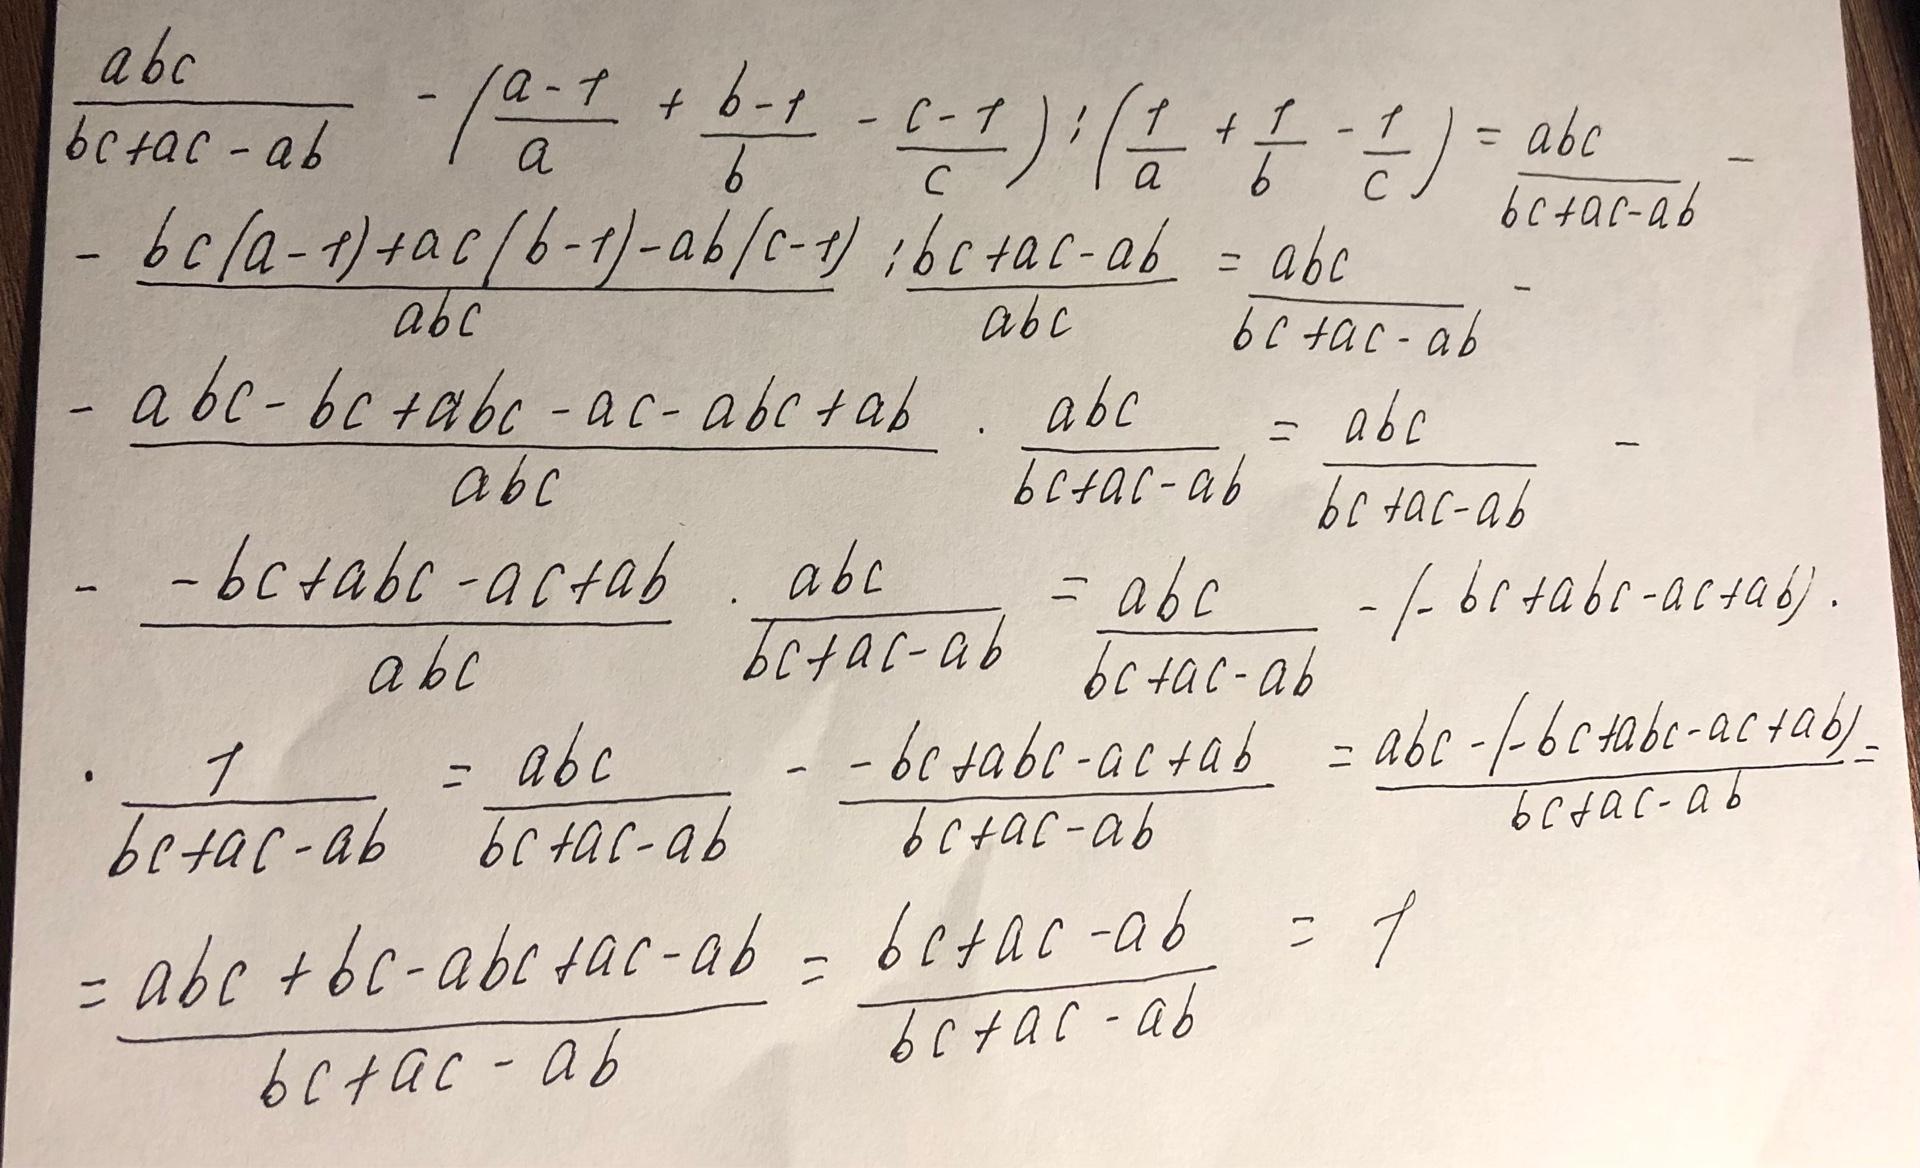 abc/(bc+ac-ab) - ((a-1)/a + (b-1)/b - (c-1)/c) : (1/a + 1/b - 1/c) = abc/(bc+ac-ab) -
- (bc(a-1)+ac(b-1)-ab(c-1))/abc : (bc+ac-ab)/abc = abc/(bc+ac-ab) -
- (abc-bc+abc-ac-abc+ab)/abc · abc/(bc+ac-ab) = abc/(bc+ac-ab) -
- (-bc+abc-ac+ab)/abc · abc/(bc+ac-ab) = abc/(bc+ac-ab) - (-bc+abc-ac+ab) ·
· 1/(bc+ac-ab) = abc/(bc+ac-ab) - (-bc+abc-ac+ab)/(bc+ac-ab) = (abc-(-bc+abc-ac+ab))/(bc+ac-ab) =
= (abc+bc-abc+ac-ab)/(bc+ac-ab) = (bc+ac-ab)/(bc+ac-ab) = 1